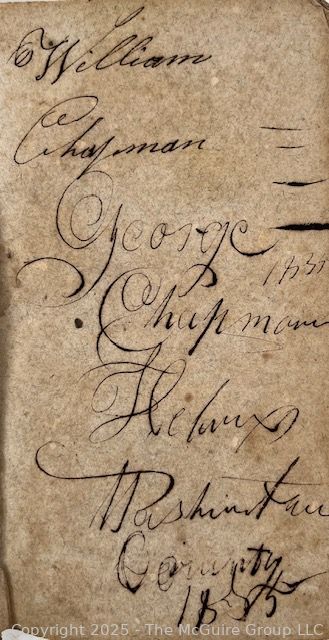 William
Chapman
George
1835
Chapman
Washintan
County
1835
Copyright 2025 - The McGuire Group LLC